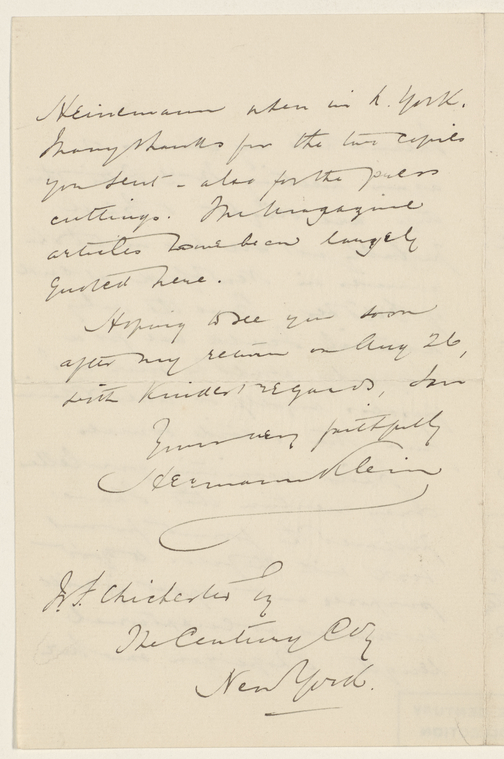 Heinemann when in N. York.
Many thanks for the two copies
you sent - also for the press
cuttings. The Magazine
articles have been largely
quoted here.
Hoping to see you soon
after my return on Aug 26,
with kindest regards, I am
Yours very faithfully
Hermann Klein
Chichester Esq
The Century Coy
New York.